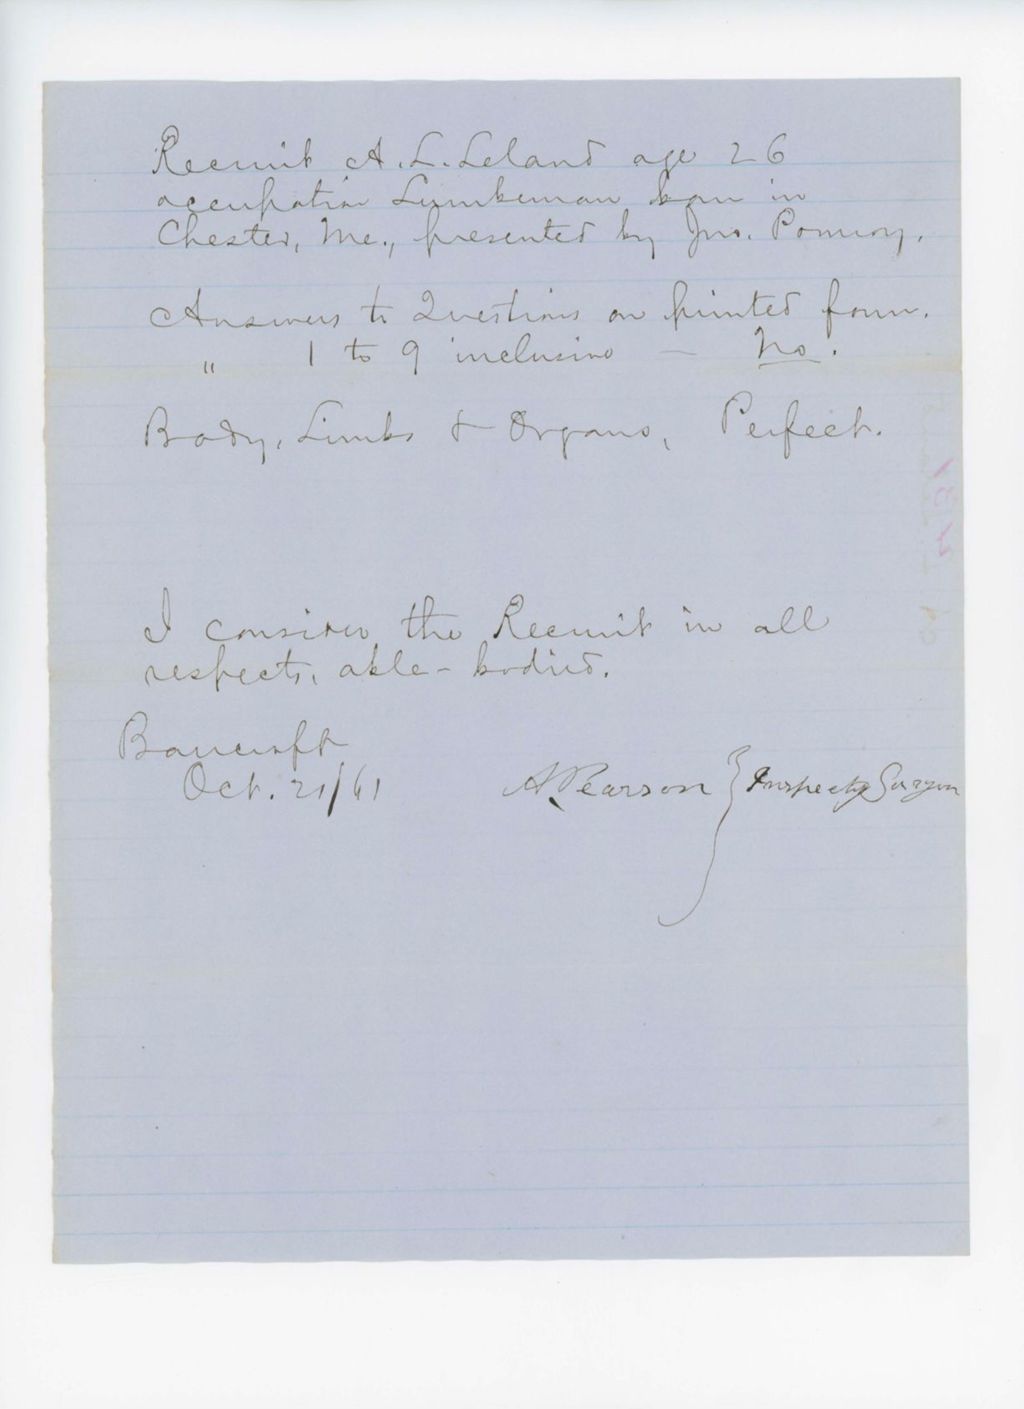 Recruit A. L. Leland age 26
occupation Lumberman born in
Chester, Me., presented by Jno. Pomroy.
Answers to Questions on printed form.
" 1 to 9 inclusive — No.
Body, Limbs & Organs, Perfect.
I consider the Recruit in all
respects, able-bodied.
Bancroft
Oct. 21/61
A. Pearson } Inspectg Surgeon